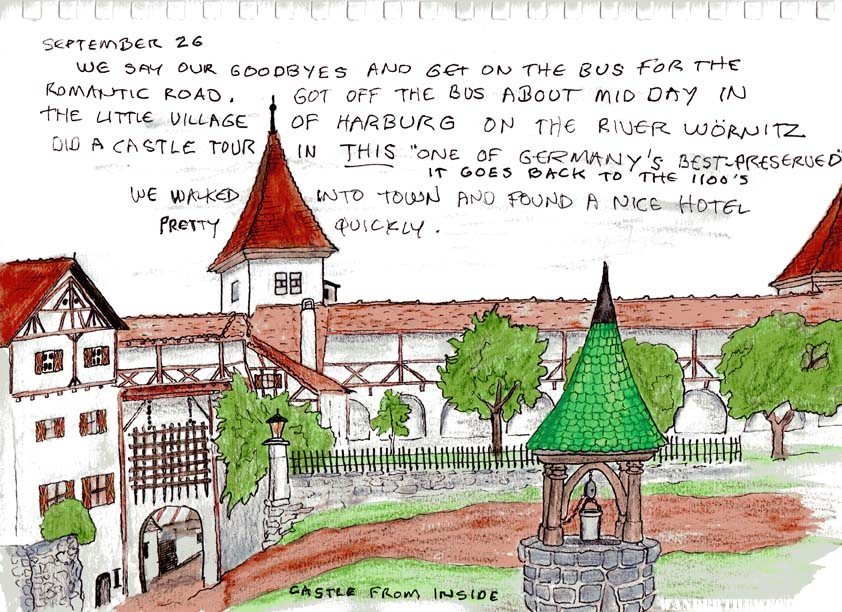 SEPTEMBER 26
WE SAY OUR GOODBYES AND GET ON THE BUS FOR THE
ROMANTIC ROAD. GOT OFF THE BUS ABOUT MID DAY IN
THE LITTLE VILLAGE OF HARBURG ON THE RIVER WÖRNITZ
DID A CASTLE TOUR IN THIS "ONE OF GERMANY'S BEST-PRESERVED"
IT GOES BACK TO THE 1100'S
WE WALKED INTO TOWN AND FOUND A NICE HOTEL
PRETTY QUICKLY.
CASTLE FROM INSIDE